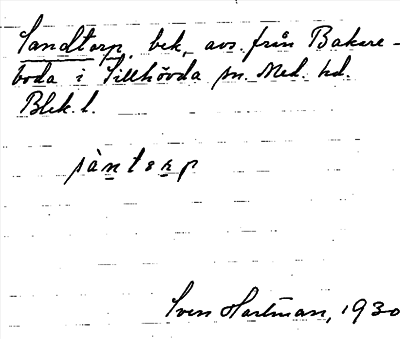 Sandtorp, bek, avs. från Bakare-
boda i Tillhövda sn. Med. hd.
Blek. l.
sàntərp
Sven Hartman, 1930